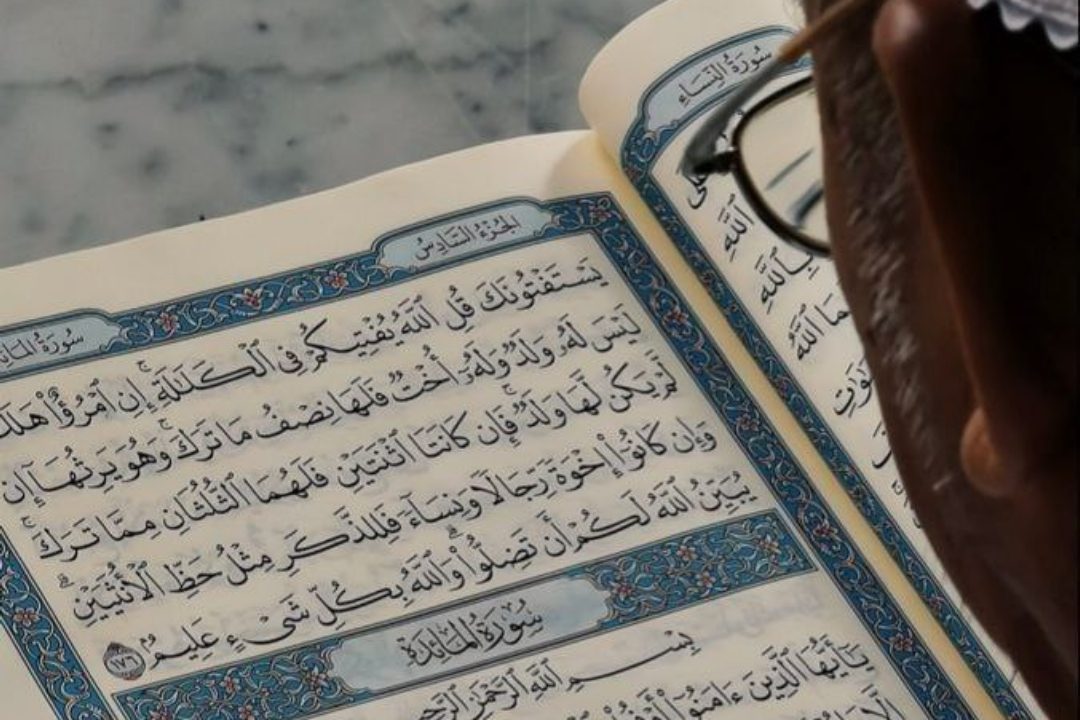 سُورَةُ النِّسَاءِ
ٱللَّهِ
بِٱللَّهِ
ٱللَّهُ
الجُزْءُ السَّادِسُ
سُورَةُ
يَسْتَفْتُونَكَ قُلِ ٱللَّهُ يُفْتِيكُمْ فِي ٱلْكَلَٰلَةِۚ إِنِ ٱمْرُؤٌا۟ هَلَكَ
لَيْسَ لَهُۥ وَلَدٌ وَلَهُۥٓ أُخْتٌ فَلَهَا نِصْفُ مَا تَرَكَۚ وَهُوَ يَرِثُهَآ إِن
لَّمْ يَكُن لَّهَا وَلَدٌۚ فَإِن كَانَتَا ٱثْنَتَيْنِ فَلَهُمَا ٱلثُّلُثَانِ مِمَّا تَرَكَۚ
وَإِن كَانُوٓا۟ إِخْوَةً رِّجَالًا وَنِسَآءً فَلِلذَّكَرِ مِثْلُ حَظِّ ٱلْأُنثَيَيْنِۗ
يُبَيِّنُ ٱللَّهُ لَكُمْ أَن تَضِلُّوا۟ۗ وَٱللَّهُ بِكُلِّ شَىْءٍ عَلِيمٌۢ ١٧٦
سُورَةُ المَائِدَةِ
بِسْمِ ٱللَّهِ ٱلرَّحْمَٰنِ
يَٰٓأَيُّهَا ٱلَّذِينَ ءَامَنُوٓا۟